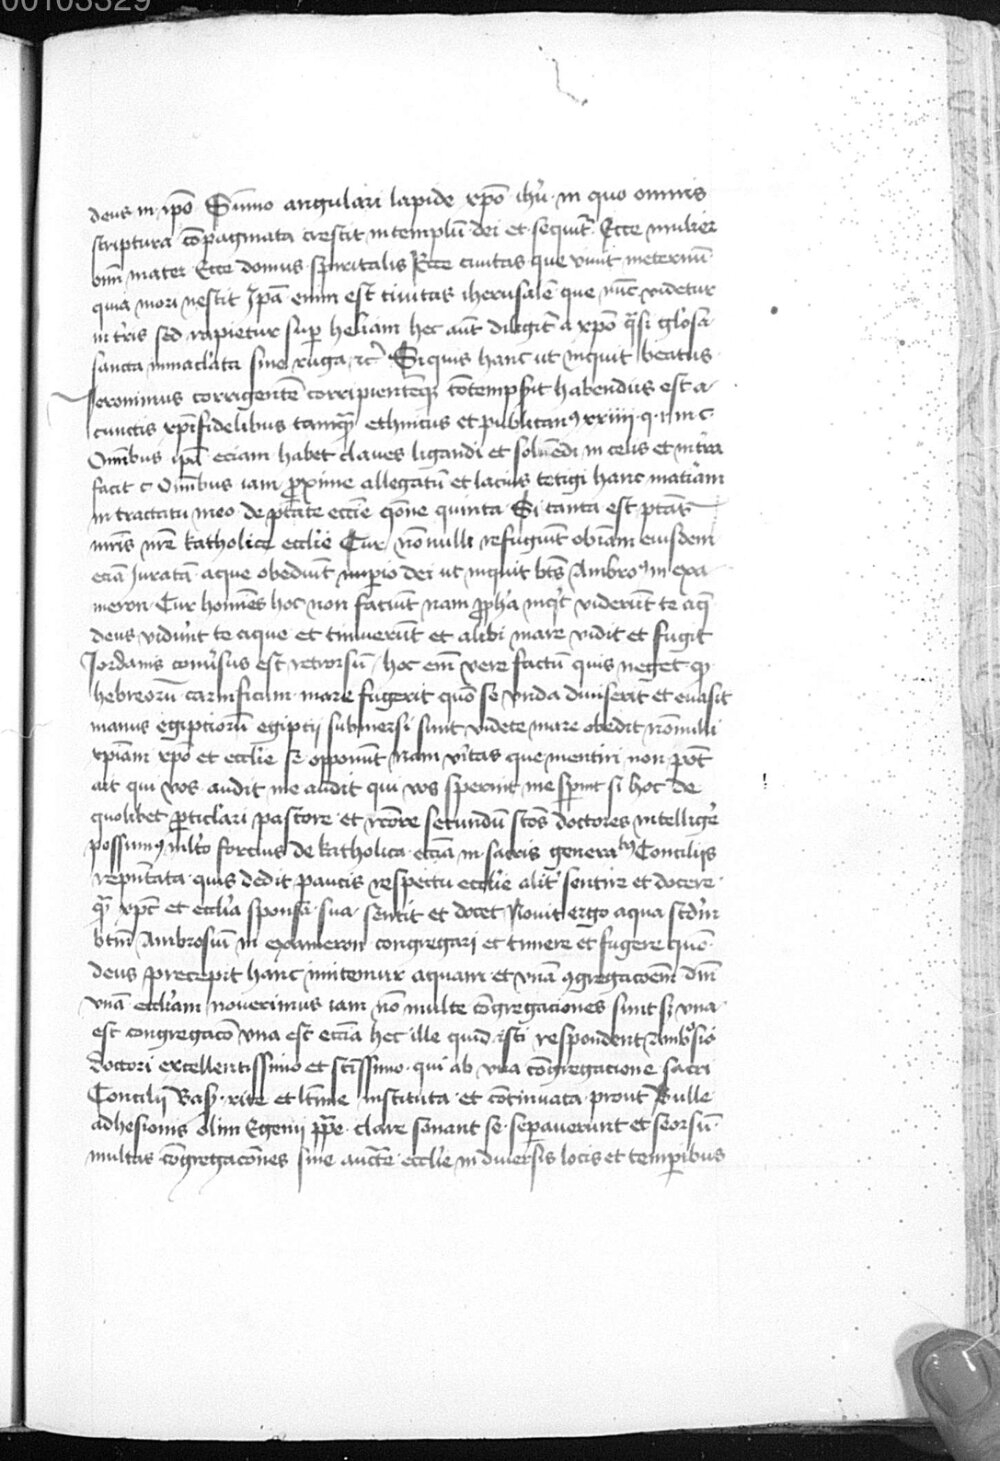 00103329
deus in ip̄o Sūmo angulari lapide xp̄o ihū in quo omnis
scriptura cōpaginata crescit in templū dei et sequit̄ Ecce mulier
oīm mater Ecce domus spiritalis Ecce ciuitas que viuit ineternū
quia mori nescit Ip̄a enim est ciuitas iherusalē que nūc videtur
in tr̄is sed rapietur sup̄ heliam hec aūt diligit̄ a xp̄o q̄si gl̓osa
sancta inmacl̓ata sine ruga ⁊c̄ Siquis hanc ut inquit beatus
Ieronimus corrigentē corripientēq; cōtempsit habendus est a
cunctis xp̄ifidelibus tamq̄ ethnicus et publicanꝰ xxiiii q i in c
Om̄ibus ip̄a eciam habet claues ligandi et soluēdi in celis et in t̓ra
facit c Om̄ibus iam ꝓxime allegatū et lacius tetigi hanc mat̓iam
in tractatu meo de p̄tate eccīe q̄one quinta Si tanta est p̄tas
mr̄is nr̄e katholice eccl̓ie Cur nōnulli refugiūt obiam eiusdem
eciā Iuratā aque obediūt imperio dei ut inquit bt̄s Ambroꝰ in exa
meron Cur homīes hoc non faciūt nam ꝓph̓a inq̓t viderūt te aq̄
deus vidūnt te aque et timuerūt et alibi mare vidit et fugit
Iordanis conu̓sus est retrorsū hoc em̄ vere factū quis neget ꝙ
hebreorū carnificum mare fugerit quō se vnda diuiserit et euasit
manus egipciorū egipcij submersi sunt videte mare obedit nōnulli
xp̄iani xp̄o et eccl̓ie se opponūt nam v̓itas que mentiri non pōt
ait qui vos audit me audit qui vos spernit me sp̄nit si hoc de
quolibet ꝑticl̓ari pastore et rc̄ore secundū sc̄os doctores intellige̓
possumꝰ ml̓to forcius de katholica eccīa in sacris genera bꝫ Concilijs
repn̄tata quis dedit paucis respectu eccl̓ie alit̓ sentire et docere
q̄ xp̄c et eccl̓ia sponsa sua sentit et docet Nouit ergo aqua scd̓m
btm̄ Ambrosiū in exameron congregari et timere et fugere quē
deus precepit hanc imitemur aquam et vnā ꝯgregacōem dn̄i
vnā eccl̓iam nouerimus iam nō multe cōgregaciones sunt sꝫ vna
est congregacō vna est eccīa hec ille quid isti respondent Ambr̓sio
doctori excellentissimo et sc̄issimo qui ab vna cōgregacione sacri
Concilij Basꝫ rite et l̄time instituta et cōtinuata prout Bulle
adhesionis olim Egenij pp̄e clare sonant se seperauerunt et seorsū
multas cōgregacōnes sine auctē eccl̓ie in diuersis locis et temporibus